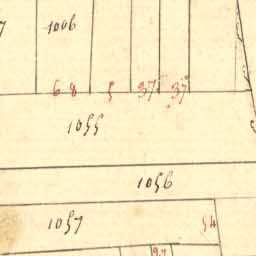 1006
68 5 37 37
1055
1056
1057 54
97